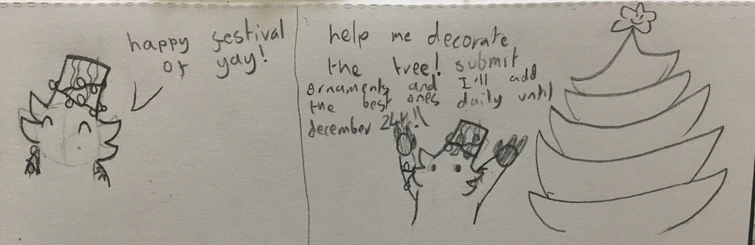 happy festival
of yay!
help me decorate
the tree! submit
ornaments and I'll add
the best ones daily until
december 24th!!